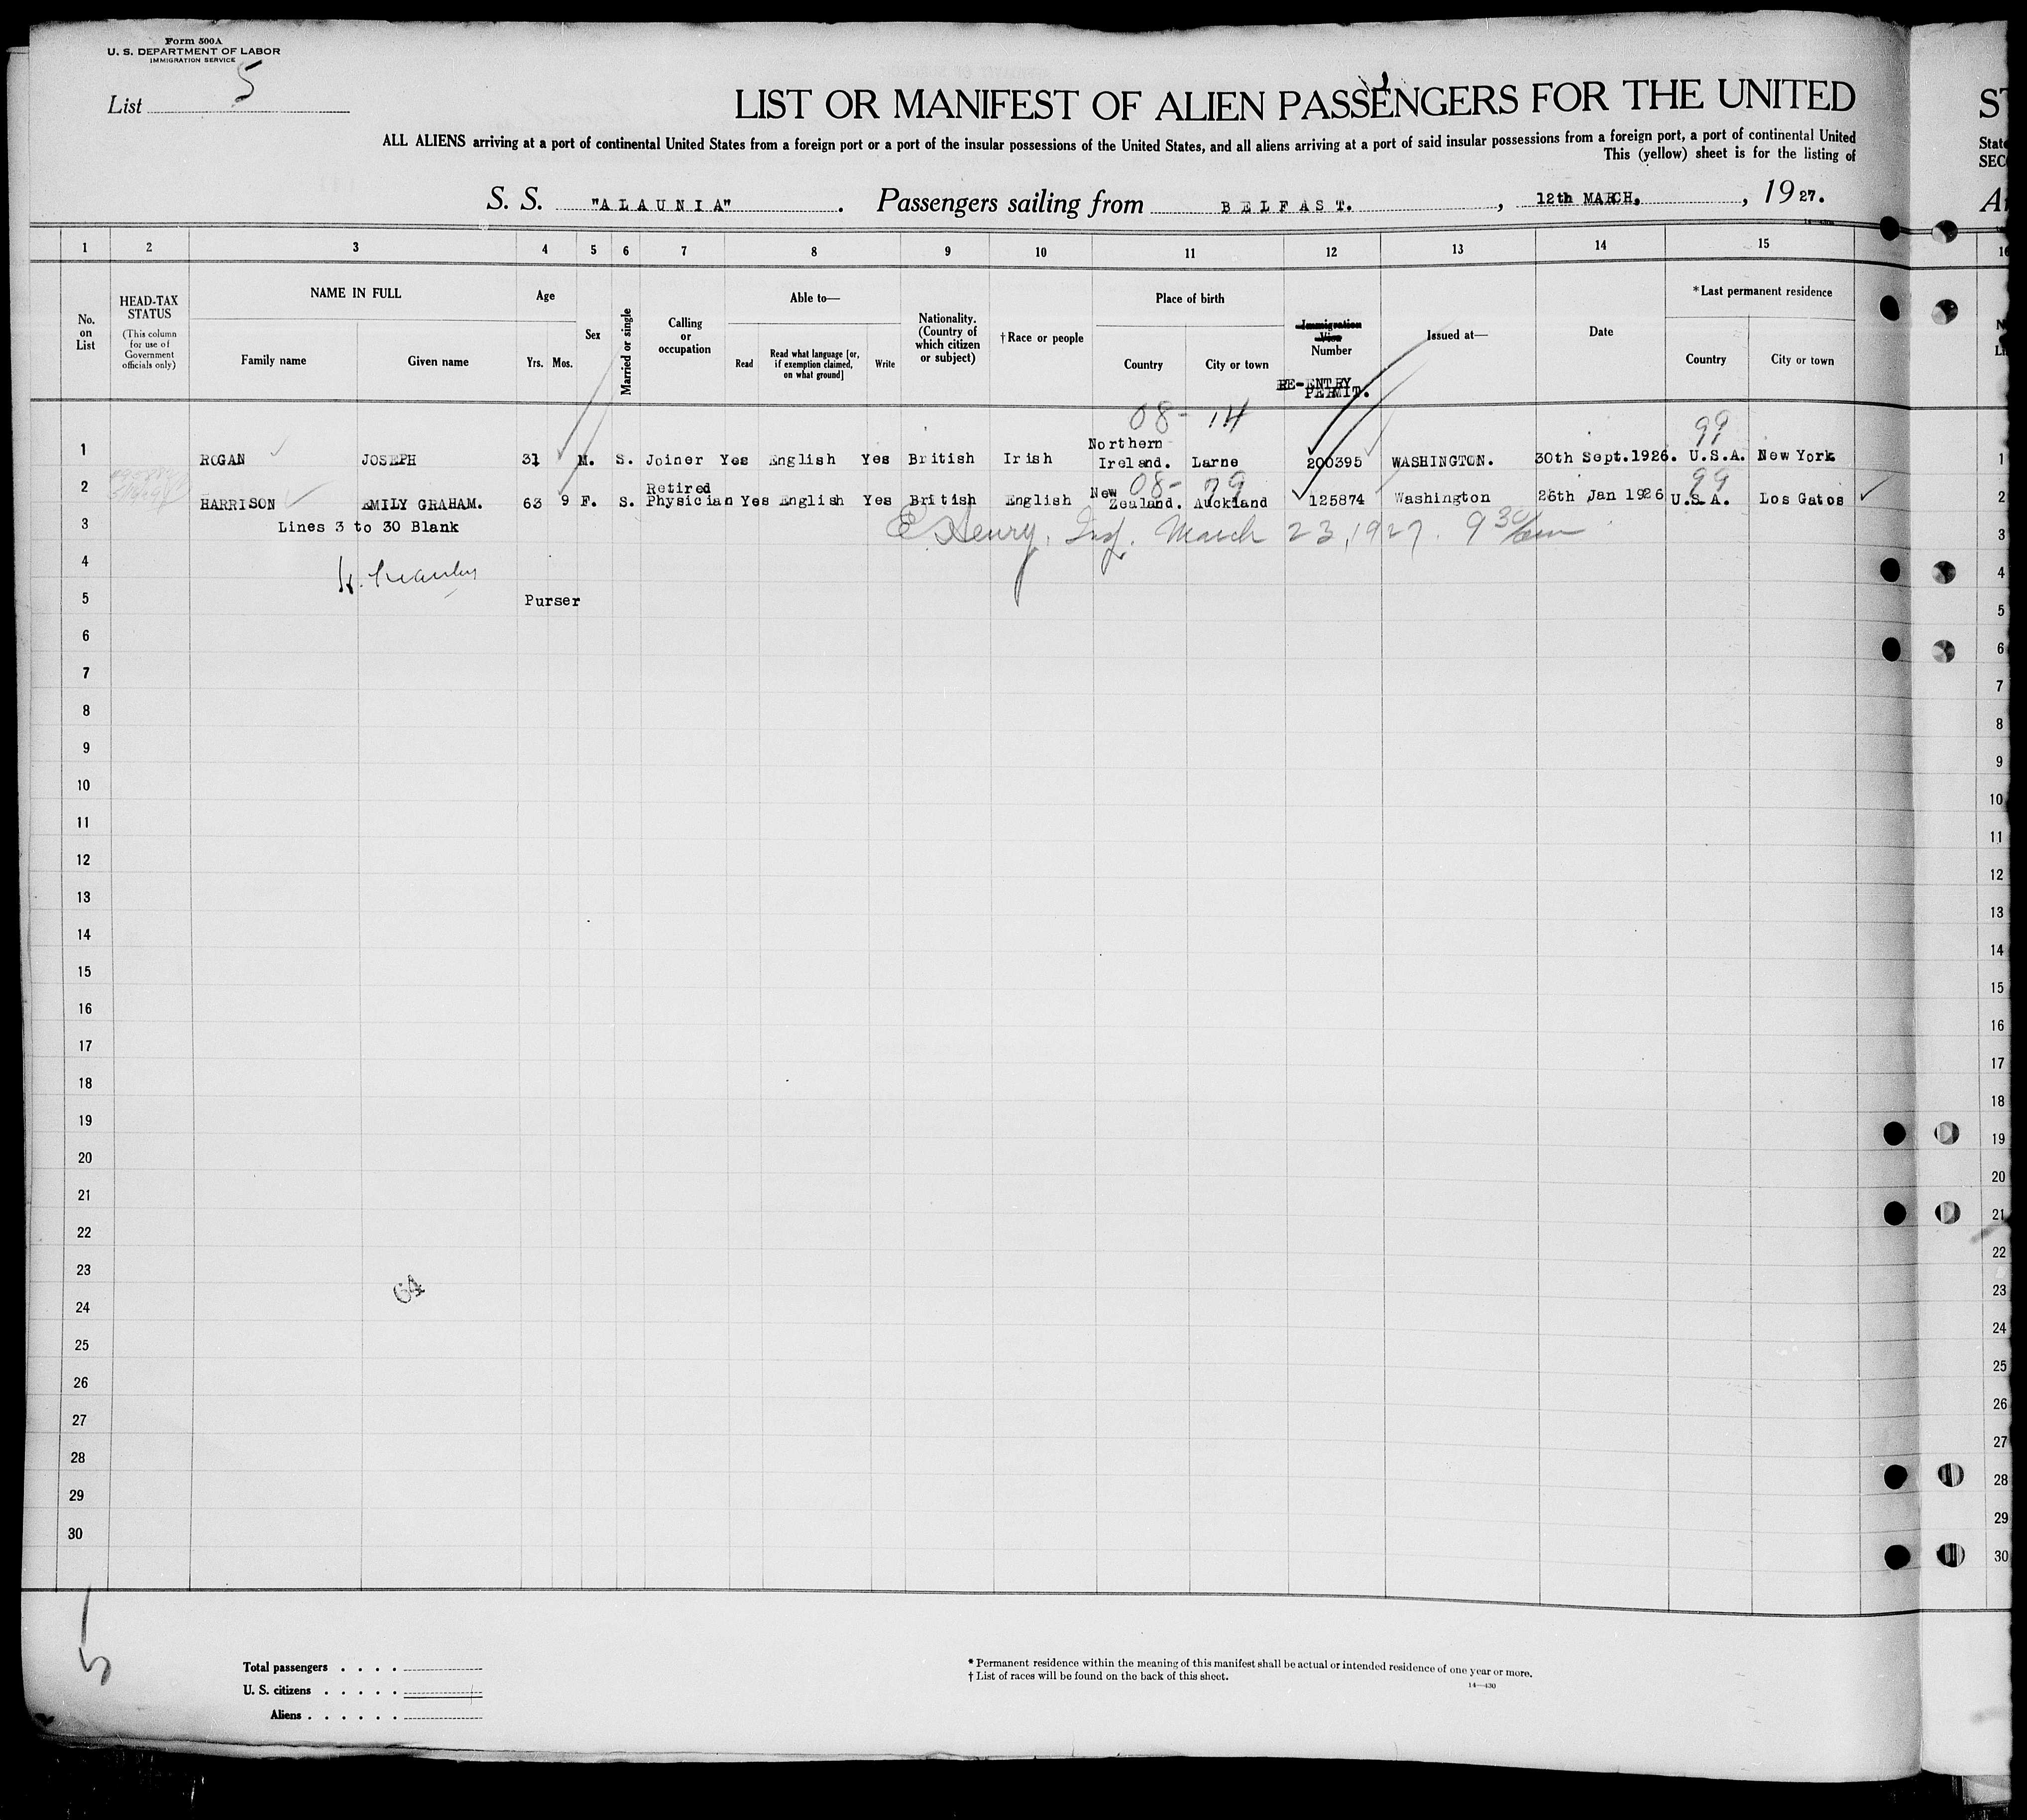 Form 500A
U. S. DEPARTMENT OF LABOR
IMMIGRATION SERVICE
List 5
LIST OR MANIFEST OF ALIEN PASSENGERS FOR THE UNITED
ALL ALIENS arriving at a port of continental United States from a foreign port or a port of the insular possessions of the United States, and all aliens arriving at a port of said insular possessions from a foreign port, a port of continental United
This (yellow) sheet is for the listing of
S. S. "ALAUNIA". Passengers sailing from BELFAST. , 12th MARCH. , 1927.
1 2 3 4 5 6 7 8 9 10 11 12 13 14 15
No. on List
HEAD-TAX STATUS
(This column for use of Government officials only)
NAME IN FULL
Family name Given name
Age
Yrs. Mos.
Sex
Married or single
Calling or occupation
Able to—
Read
Read what language [or, if exemption claimed, on what ground]
Write
Nationality. (Country of which citizen or subject)
†Race or people
Place of birth
Country City or town
Immigration Visa Number
RE-ENTRY PERMIT.
Issued at—
Date
*Last permanent residence
Country City or town
08- 14 99
1 ROGAN JOSEPH 31 M. S. Joiner Yes English Yes British Irish Northern Ireland. Larne 200395 WASHINGTON. 30th Sept.1926. U.S.A. New York 1
08- 79 99
2 HARRISON EMILY GRAHAM. 63 9 F. S. Retired Physician Yes English Yes British English New Zealand. Auckland 125874 Washington 26th Jan 1926 U.S.A. Los Gatos 2
3 Lines 3 to 30 Blank 3
Henry, Insp. March 23, 1927. 9 30
4 4
5 Purser 5
6 6
7 7
8 8
9 9
10 10
11 11
12 12
13 13
14 14
15 15
16 16
17 17
18 18
19 19
20 20
21 21
22 22
23 23
64
24 24
25 25
26 26
27 27
28 28
29 29
30 30
5
Total passengers . . . .
U. S. citizens . . . . .
Aliens . . . . . .
* Permanent residence within the meaning of this manifest shall be actual or intended residence of one year or more.
† List of races will be found on the back of this sheet.
14—430